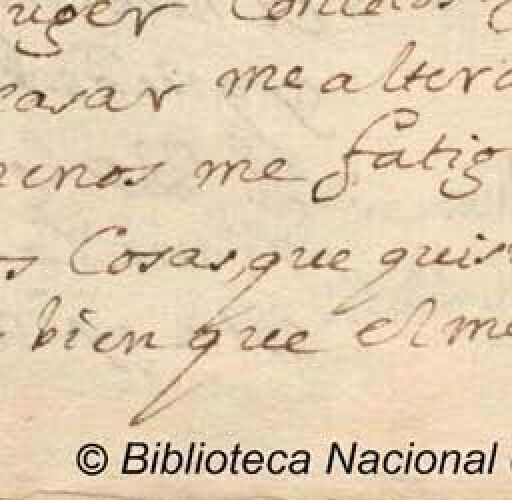 uger
casar me altera
menos me fatig
s Cosas, que quis
bien que el me
© Biblioteca Nacional